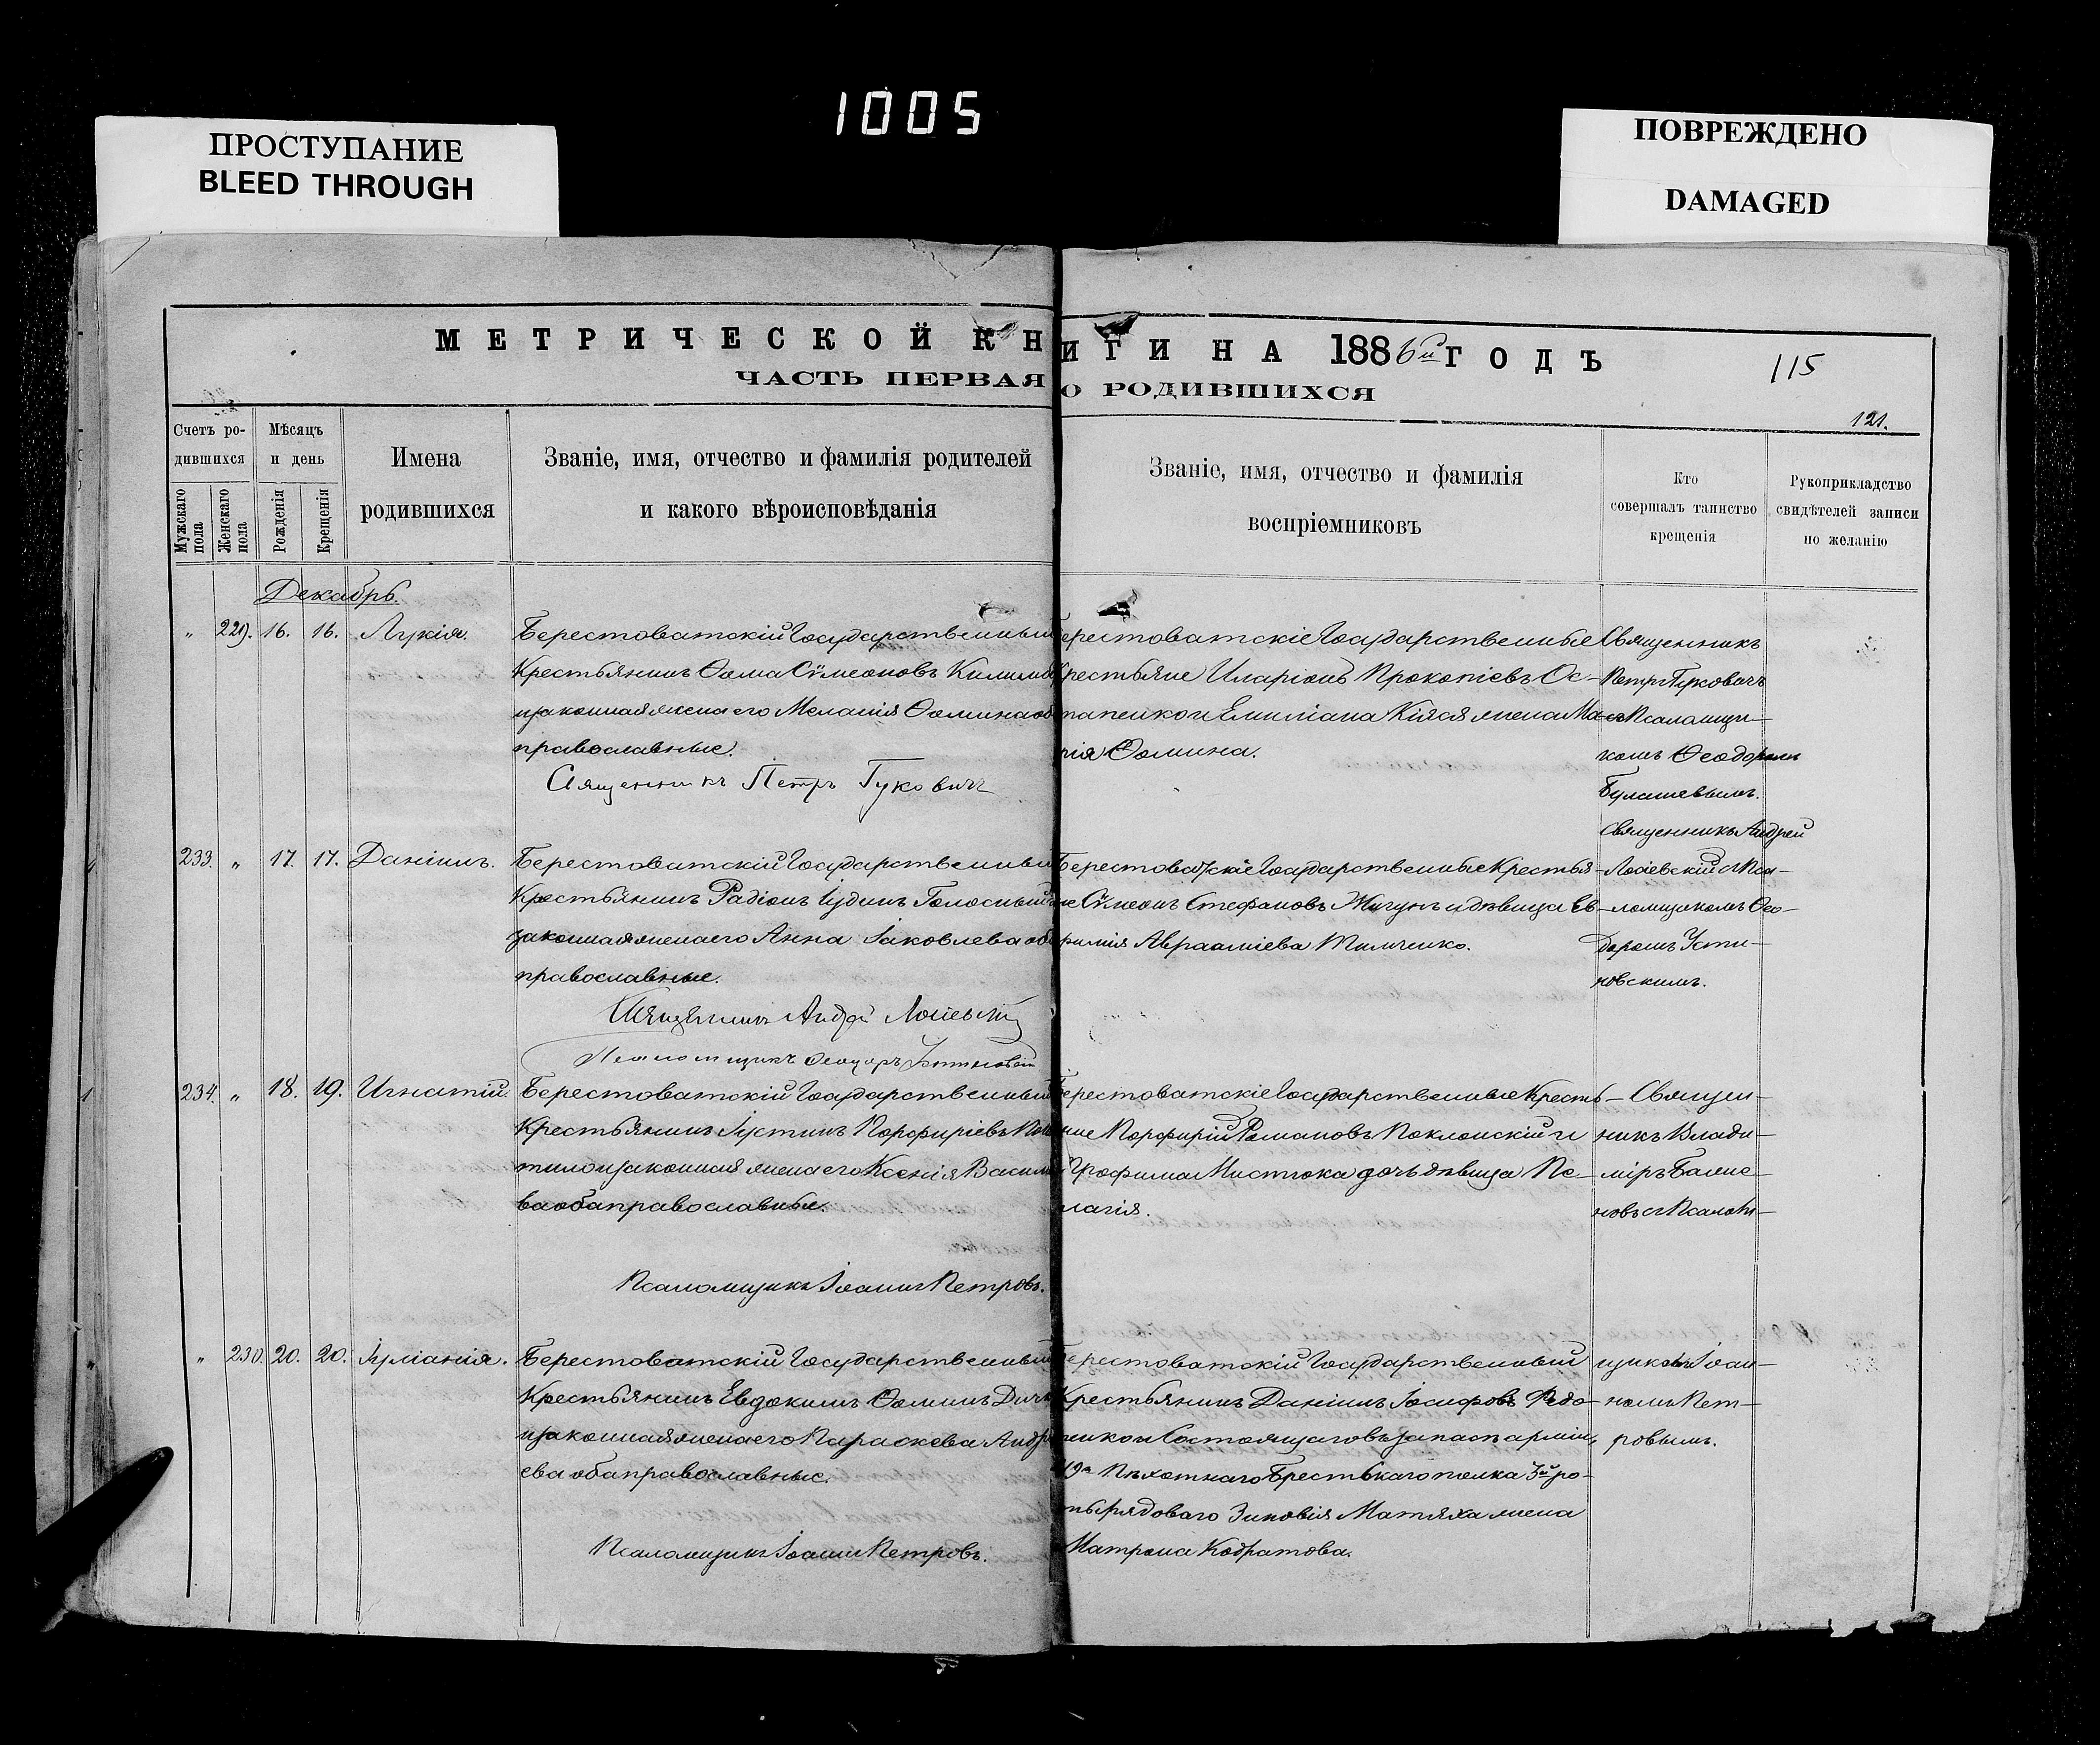 1005
ПРОСТУПАНИЕ
BLEED THROUGH
ПОВРЕЖДЕНО
DAMAGED
МЕТРИЧЕСКОЙ КНИГИ НА 1886й ГОДЪ
115
ЧАСТЬ ПЕРВАЯ О РОДИВШИХСЯ
121.
Счетъ ро-
дившихся
Мужскаго пола
Женскаго пола
Мѣсяцъ
и день
Рожденія
Крещенія
Имена
родившихся
Званіе, имя, отчество и фамилія родителей
и какого вѣроисповѣданія
Званіе, имя, отчество и фамилія
воспріемниковъ
Кто
совершалъ таинство
крещенія
Рукоприкладство
свидѣтелей записи
по желанію
Декабрь.
" 229. 16. 16. Лукія.
Берестоватскій Государственный
Крестьянинъ Ѳома Сѵмеоновъ
и законная жена его Меланія Ѳомина об
православные.
Священникъ Петръ Гуковичъ
ерестоватскіе Государственные
рестьяне Иларіонъ Прокопіевъ Ос-
тапенко и Емиліана Кіяся жена Ма-
рія Ѳомина.
Священникъ
Петръ Гуковичъ
съ Псаломщи-
комъ Ѳеодоромъ
233. " 17. 17. Даніилъ.
Берестоватскій Государственный
Крестьянинъ Радіонъ Іудинъ
законная жена его Анна Іаковлева об
православные.
Священникъ Андрей Лосіевскій
Псаломщикъ Ѳеодоръ Устиновскій
Берестоватскіе Государственные Крестья-
не Сѵмеонъ Стефановъ Жигунъ и дѣвица Ев-
фимія Авраамієва Тимченко.
Священникъ Андрей
Лосіевскій съ Пса-
ломщикомъ Ѳео-
доромъ Усти-
новскимъ.
234. " 18. 19. Игнатій.
Берестоватскій Государственный
Крестьянинъ Іустинъ Порфиріевъ
и законная жена его Ксенія Василі
ва оба православные.
Псаломщикъ Іоаннъ Петровъ.
ерестоватскіе Государственные Кресть-
яне Порфирій Романовъ Поклонскій и
Трофима Мистюка дочь дѣвица Пе-
лагія.
Священ-
никъ Влади-
міръ Баже-
новъ съ Псалом-
" 230. 20. 20. Іуліанія.
Берестоватскій Государственный
Крестьянинъ Евдокимъ Ѳоминъ
и законная жена его Параскева Андре
ева оба православные.
Псаломщикъ Іоаннъ Петровъ.
ерестоватскій Государственный
Крестьянинъ Даніилъ Іосифовъ Редо-
ненко и Состоящаго въ запасѣ арміи,
49го Пѣхотнаго Брестскаго полка 3й ро-
ты рядоваго Зиновія Матяха жена
Матрона Кодратова.
щикомъ Іоан-
номъ Пет-
ровымъ.